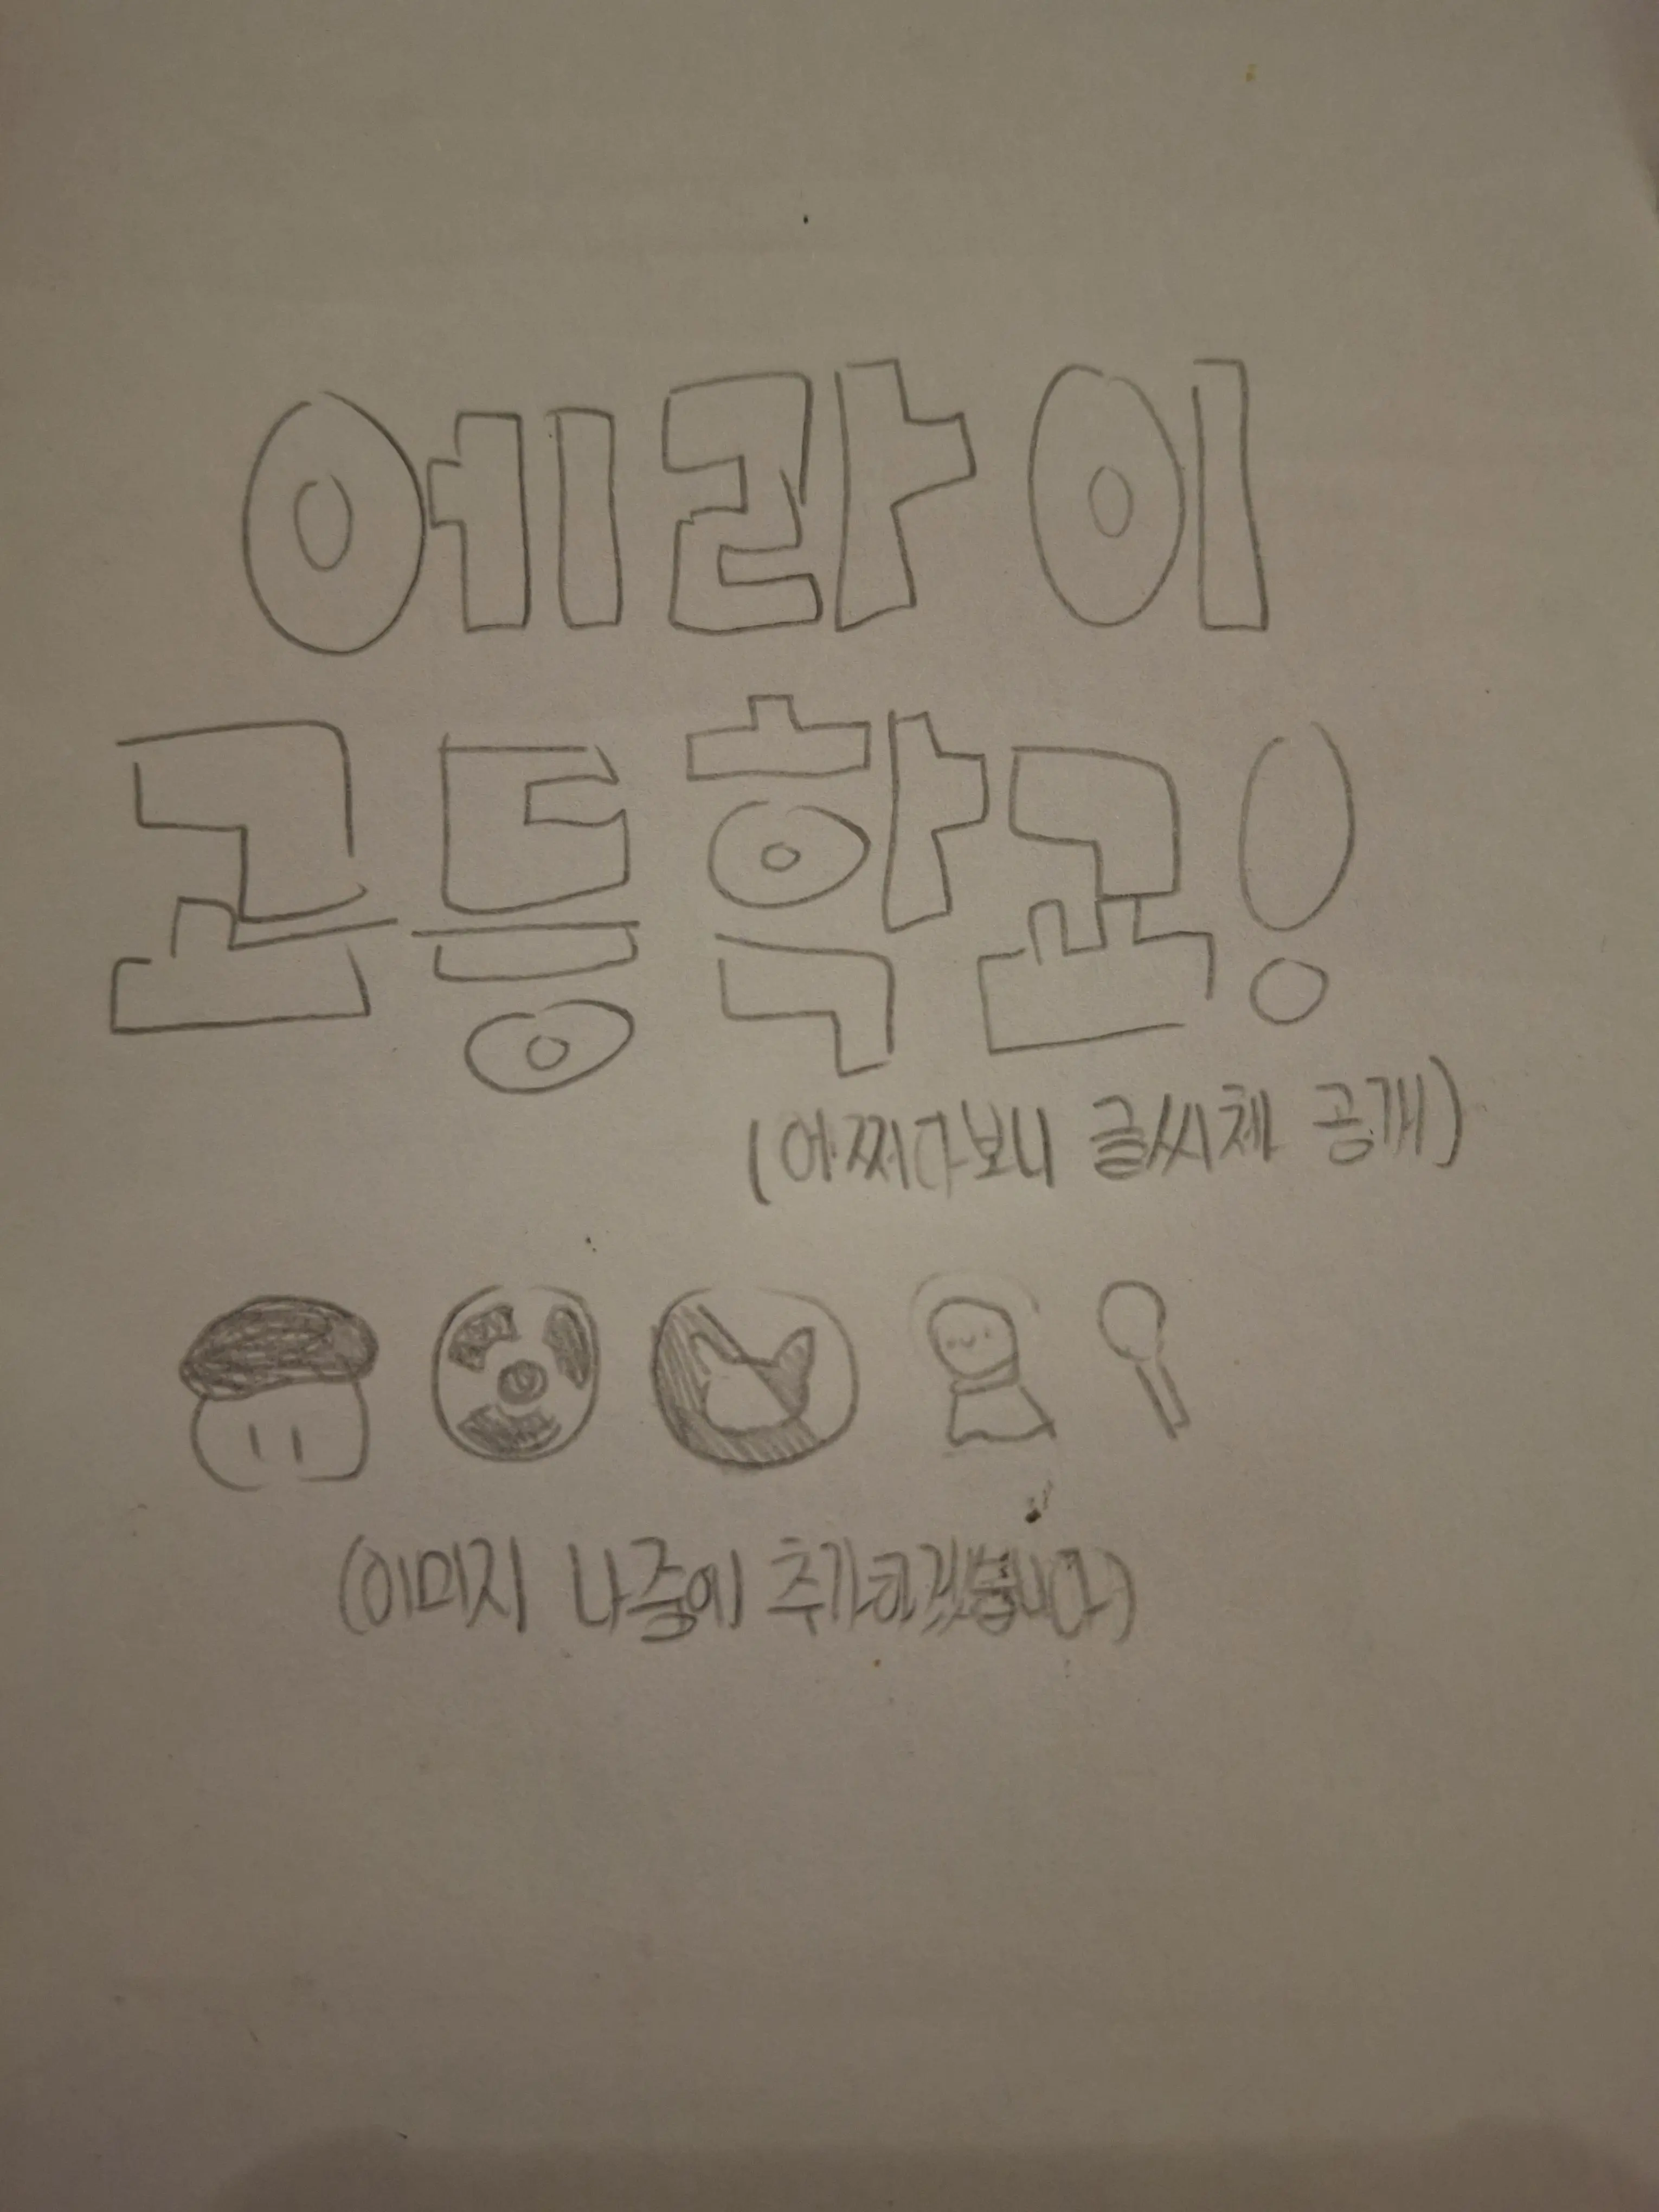 에라이
고등학교!
(어쩌다보니 글씨체 공개)
(이미지 나중에 추가하겠습니다)